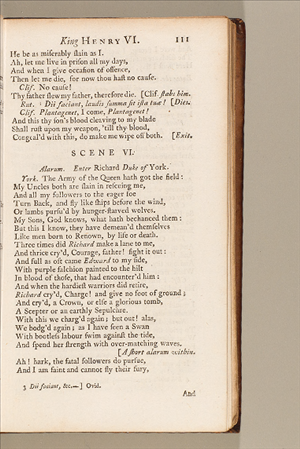 King HENRY VI. 111
He be as miſerably ſlain as I.
Ah, let me live in priſon all my days,
And when I give occaſion of offence,
Then let me die, for now thou haſt no cauſe.
Clif. No cauſe!
Thy father ſlew my father, therefore die. [Clif. ſtabs him.
Rut. ³ Dii faciant, laudis ſumma ſit iſta tuæ! [Dies.
Clif. Plantagenet, I come, Plantagenet!
And this thy ſon's blood cleaving to my blade
Shall ruſt upon my weapon, 'till thy blood,
Congeal'd with this, do make me wipe off both. [Exit.
SCENE VI.
Alarum. Enter Richard Duke of York.
York. The Army of the Queen hath got the field:
My Uncles both are ſlain in reſcuing me,
And all my followers to the eager foe
Turn Back, and fly like ſhips before the wind,
Or lambs purſu'd by hunger-ſtarved wolves.
My Sons, God knows, what hath bechanced them:
But this I know, they have demean'd themſelves
Like men born to Renown, by life or death.
Three times did Richard make a lane to me,
And thrice cry'd, Courage, father! fight it out:
And full as oft came Edward to my ſide,
With purple falchion painted to the hilt
In blood of thoſe, that had encounter'd him:
And when the hardieſt warriors did retire,
Richard cry'd, Charge! and give no foot of ground;
And cry'd, a Crown, or elſe a glorious tomb,
A Scepter or an earthly Sepulchre.
With this we charg'd again; but out! alas,
We bodg'd again; as I have ſeen a Swan
With bootleſs labour ſwim againſt the tide,
And ſpend her ſtrength with over-matching waves.
[A ſhort alarum within.
Ah! hark, the fatal followers do purſue,
And I am faint and cannot fly their fury,
3 Dii faciant, &c.—] Ovid.
And